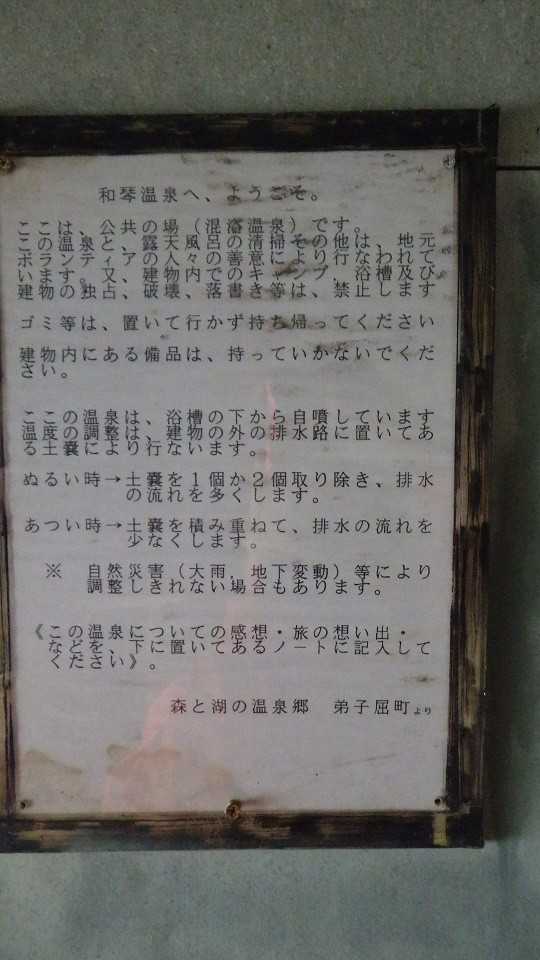 和琴温泉へ、ようこそ。
ここは、公共の場（混浴温泉）です。
この温泉と、露天風呂の清掃その他は、地元
ボランティアの人々の善意により行なわれて
います。又、建物内でのキャンプ、浴槽及び
建物の独占、破壊、落書き等は、禁止します
ゴミ等は、置いて行かず持ち帰ってください
建物内にある備品は、持っていかないでくだ
さい。
ここの温泉は、浴槽の下から自噴しています
温度の調整は、建物の外の排水路に置いてあ
る土嚢により行ないます。
ぬるい時→土嚢を１個か２個取り除き、排水
の流れを多くします。
あつい時→土嚢を積み重ねて、排水の流れを
少なくします。
※　自然災害（大雨，地下変動）等により
調整しきれない場合もあります。
《この温泉についての感想・旅の想い出・
などを、下に置いてあるノートに記入して
ください》。
森と湖の温泉郷　弟子屈町より